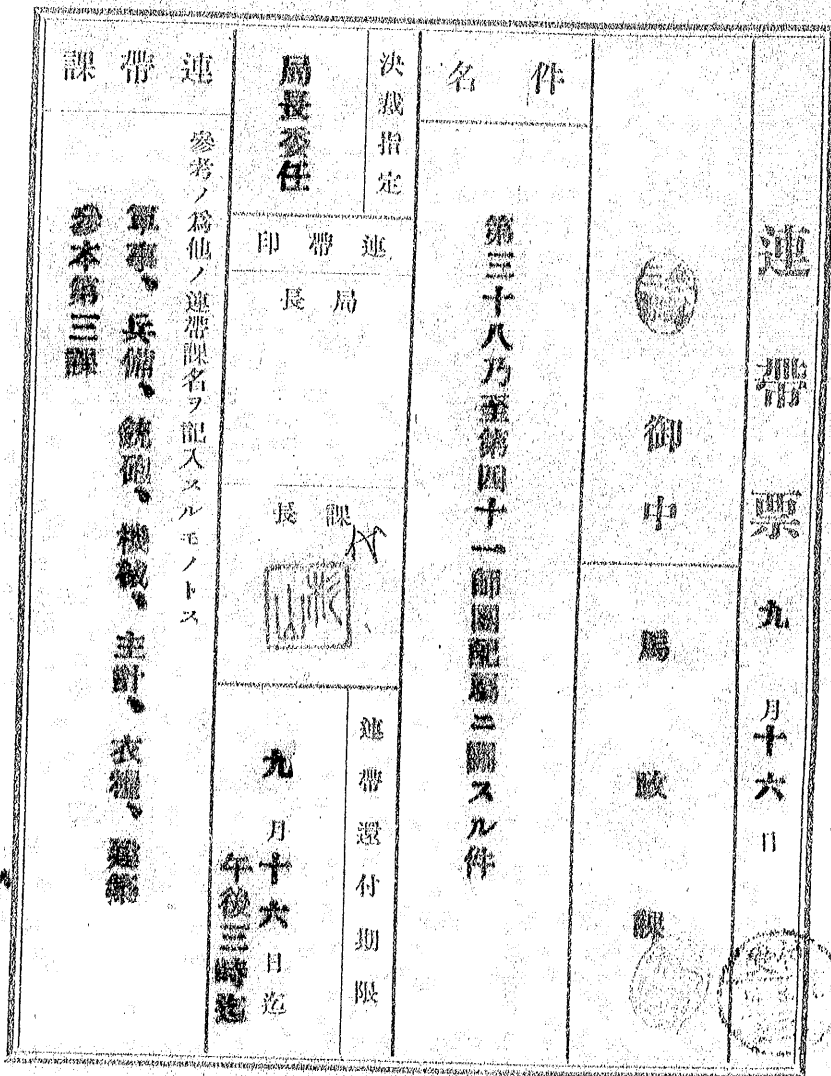 連帶票 九月十六日
御中
馬政課
件名
第三十八乃至第四十一師團配屬ニ關スル件
決裁指定
局長委任
連帶印
局長
課長
連帶還付期限
九月十六日迄
午後三時迄
連帶課
參考ノ爲他ノ連帶課名ヲ記入スルモノトス
軍事、兵備、銃砲、機械、主計、衣糧、建築
參本第三課